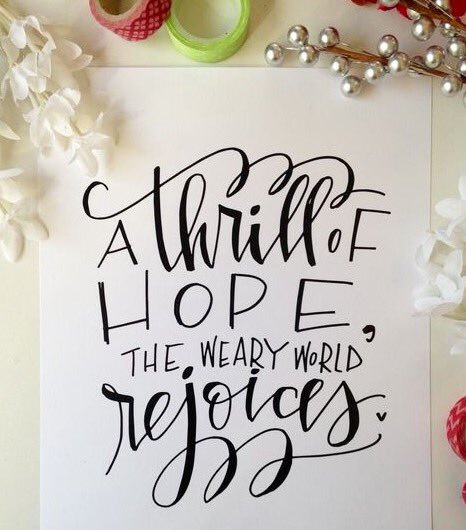 A thrill OF
HOPE,
THE WEARY WORLD
rejoices.